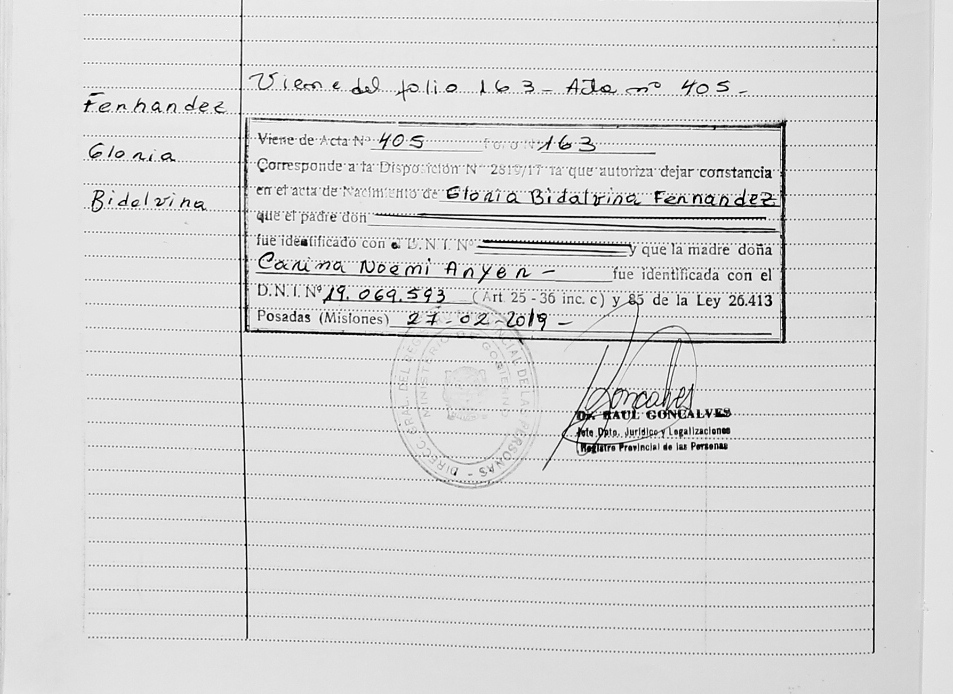 Viene del folio 163 - Acta nº 405 -
Fernandez
Gloria
Bidalvina
Viene de Acta Nº 405 Folio Nº 163
Corresponde a la Disposición Nº 2819/17 la que autoriza dejar constancia
en el acta de Nacimiento de Gloria Bidalvina Fernandez
que el padre don
fue identificado con el D.N.I. Nº y que la madre doña
Carina Noemi Anyen - fue identificada con el
D.N.I. Nº 19.069.593 (Art. 25 - 36 inc. c) y 85 de la Ley 26.413
Posadas (Misiones) 27-02-2019 -
Goncalves
Dr. RAUL GONCALVES
Jefe Dpto. Jurídico y Legalizaciones
Registro Provincial de las Personas
MINISTERIO DE GOBIERNO
PROVINCIAL DE LAS PERSONAS - DIRECC